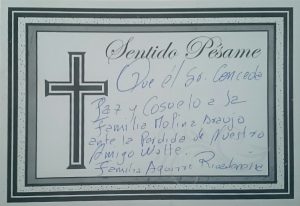 Sentido Pésame
Que él Sr. Conceda
Paz y Cosuelo a la
Familia Molina Araujo
ante la Perdida de Nuestro
Amigo Walte.
Familia Aguirre